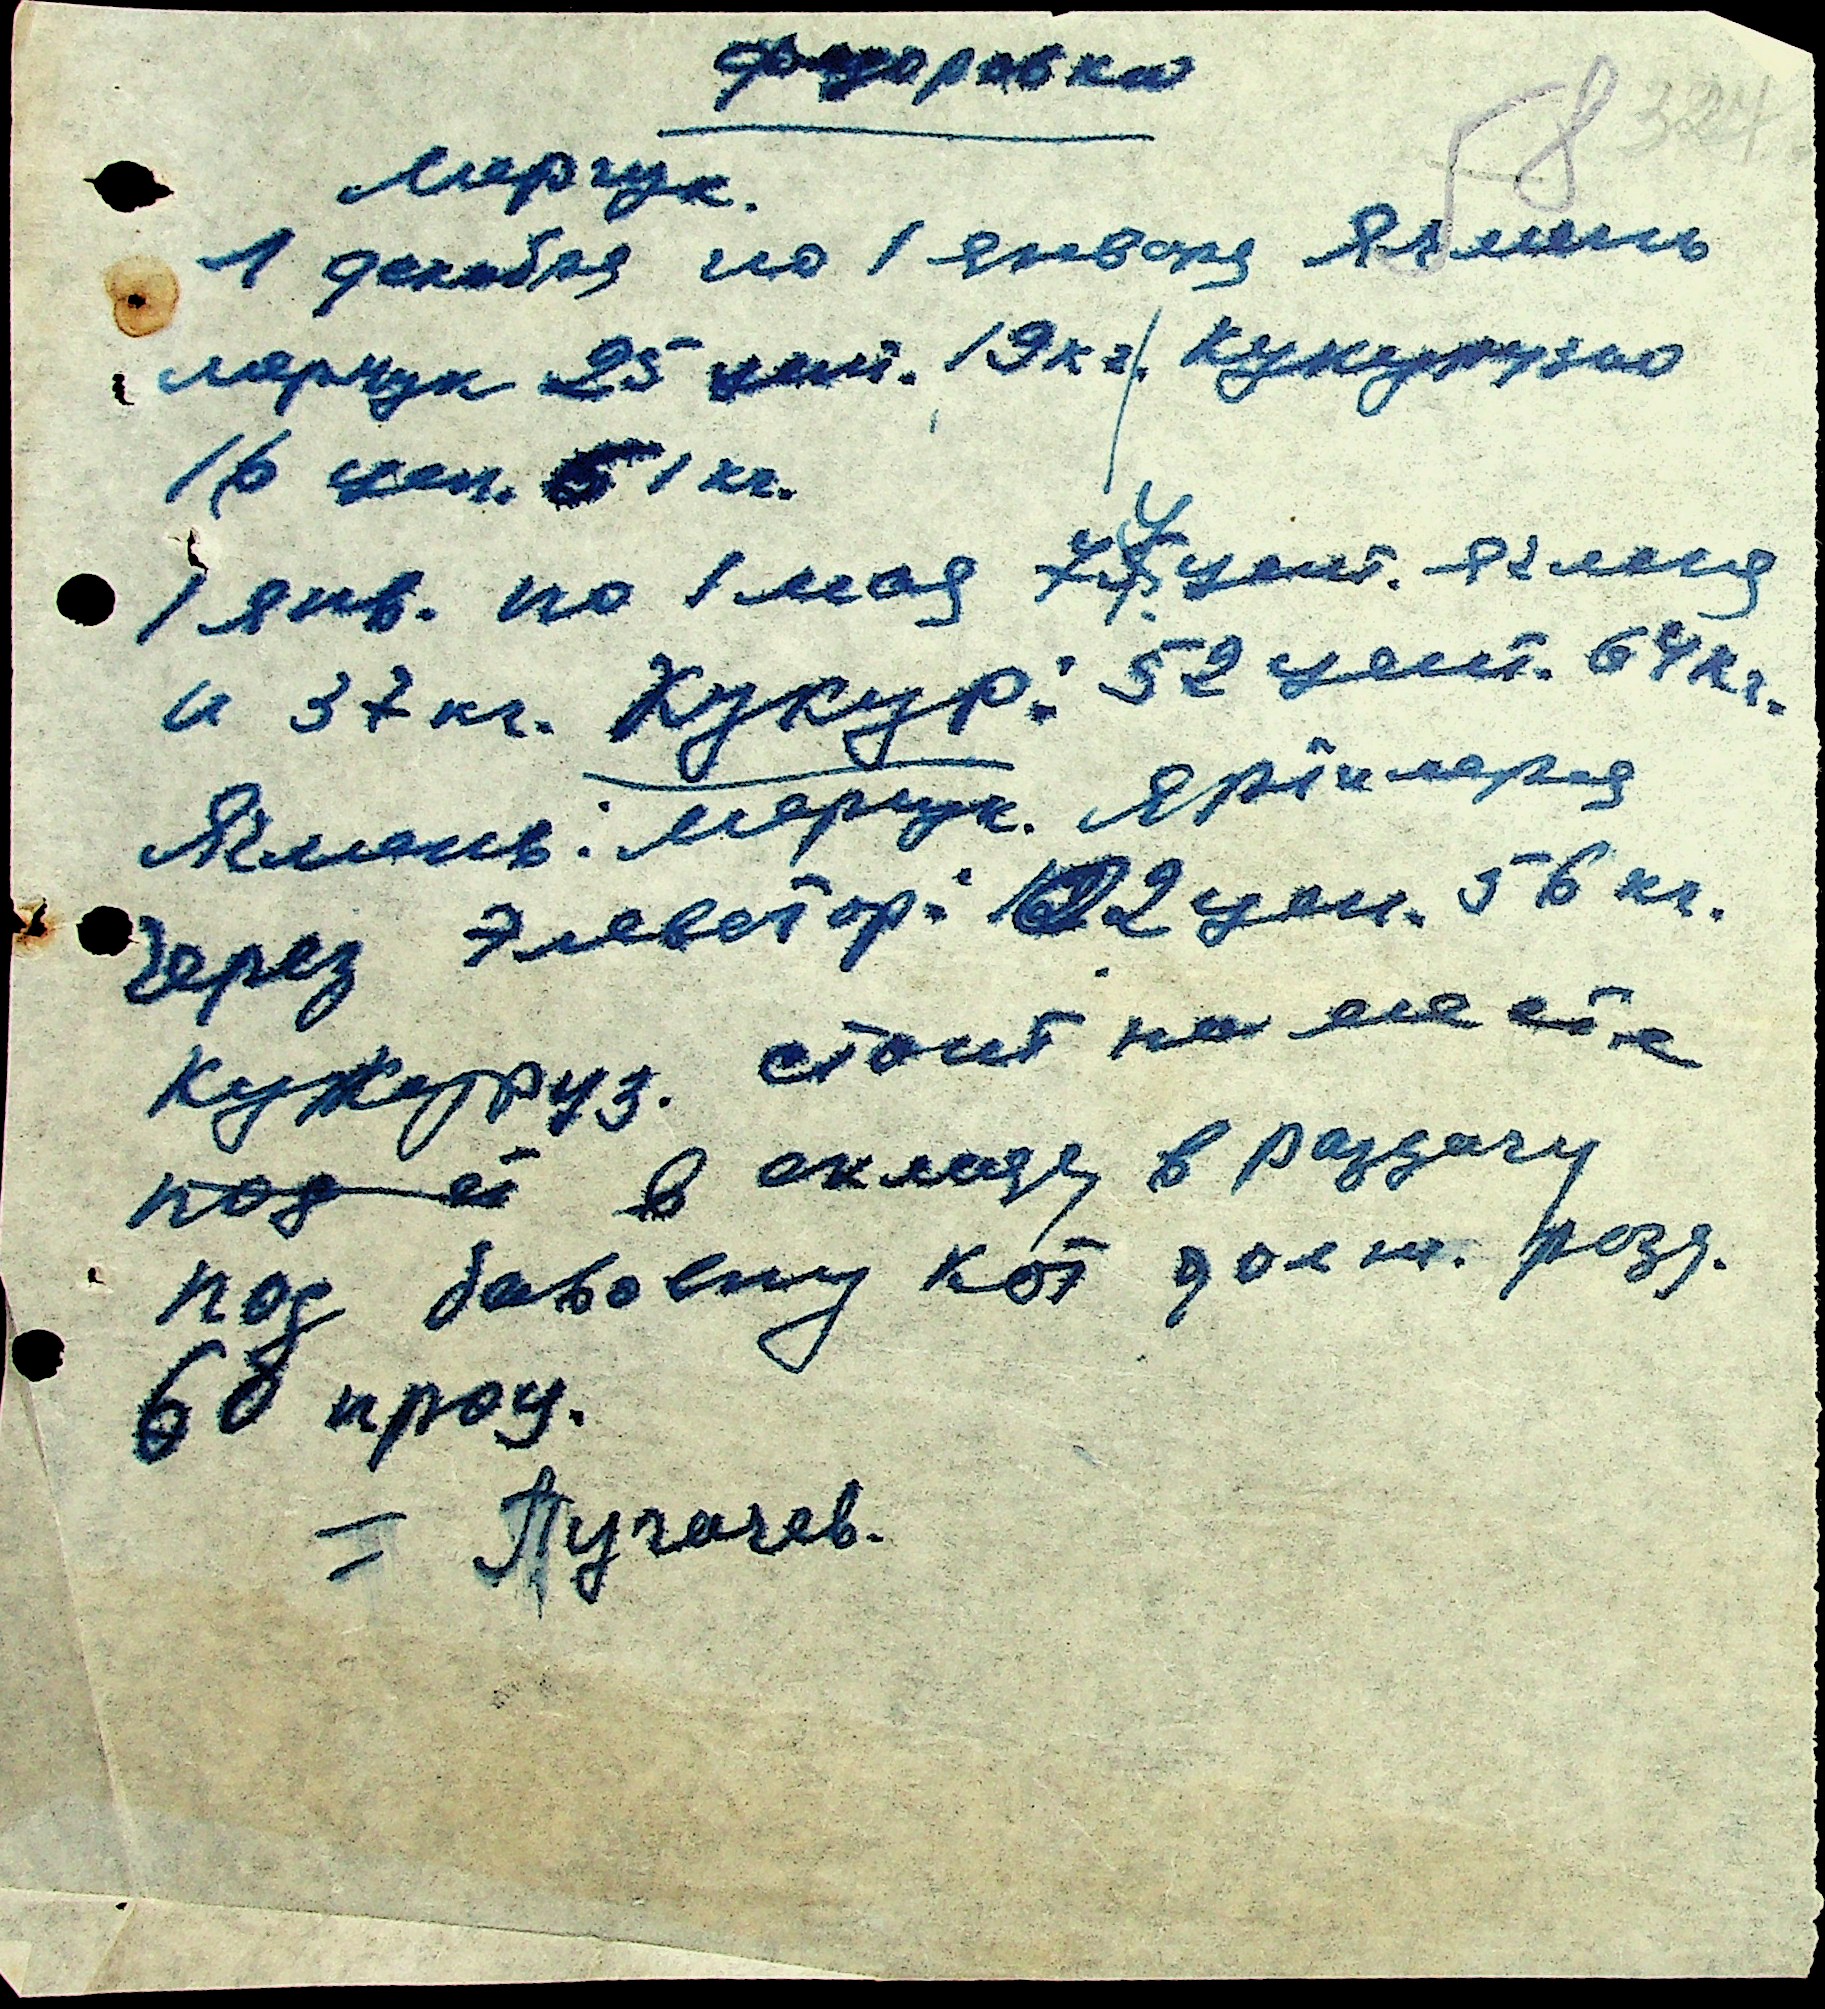 Федоровка
58 324
Мерчук.
1 декабря по 1 января Ячмень
мерчук 25 цент. 19 кг. Кукурузы
16 цен. 51 кг.
1 янв. по 1 мая цент. ячменя
и 37 кг. Кукур: 52 цент. 64 кг.
Ячмень: мерчук.
Через элеватор: 2 цен. 56 кг.
Кукуруз. стоит на месте
под в складу в раздачу
под бавовну кот должн. розд.
60 проц.
= Пугачев.